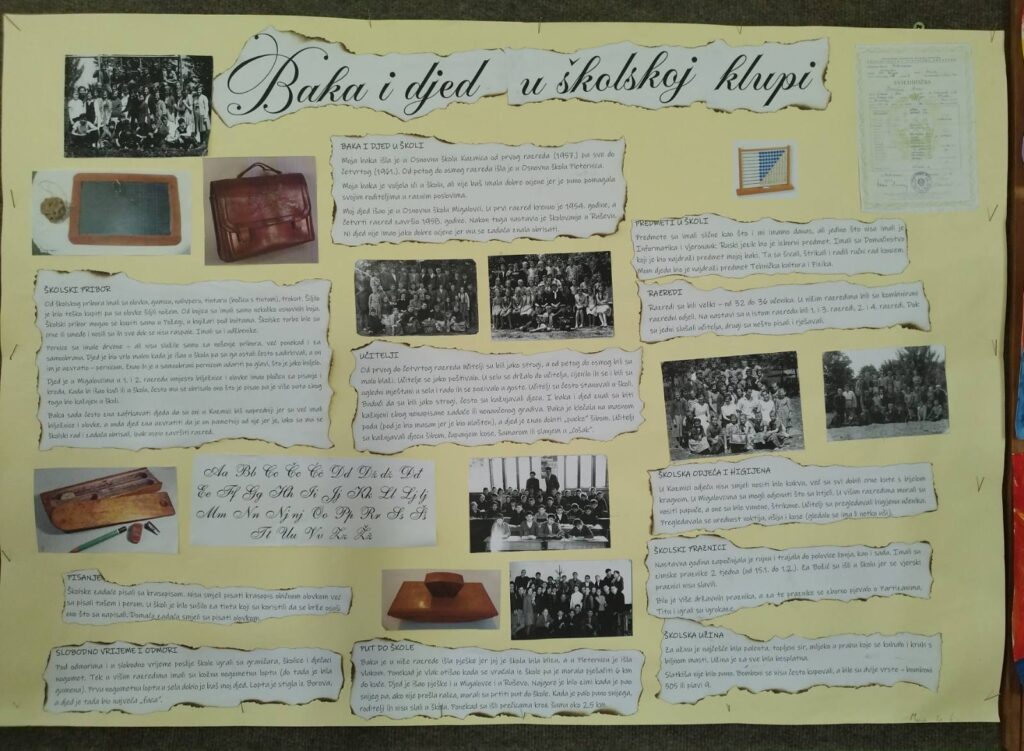 Baka i djed u školskoj klupi
BAKA I DJED U ŠKOLI
Moja baka išla je u Osnovnu školu Kuzmica od prvog razreda (1957.) pa sve do
četvrtog (1961.). Od petog do osmog razreda išla je u Osnovnu školu Pleternica.
Moja baka je voljela ići u školu, ali nije baš imala dobre ocjene jer je puno pomagala
svojim roditeljima u raznim poslovima.
Moj djed išao je u Osnovnu školu Migalovci. U prvi razred krenuo je 1954. godine, a
četvrti razred završio 1958. godine. Nakon toga nastavio je školovanje u Ruševu.
Ni djed nije imao jako dobre ocjene jer mu se zadaća znala obrisati.
PREDMETI U ŠKOLI
Predmete su imali slične kao što i mi imamo danas, ali jedino što nisu imali je
Informatika i Vjeronauk. Ruski jezik bio je izborni predmet. Imali su Domaćinstvo
koji je bio najdraži predmet mojoj baki. Tu su šivali, štrikali i radili ručni rad koncem.
Mom djedu bio je najdraži predmet Tehnička kultura i Fizika.
RAZREDI
Razredi su bili veliki – od 32 do 36 učenika. U nižim razredima bili su kombinirani
razredni odjeli. Na nastavi su u istom razredu bili 1. i 3. razred, i 2. i 4. razred. Dok
su jedni slušali učitelja, drugi su nešto pisali i rješavali.
ŠKOLSKI PRIBOR
Od školskog pribora imali su olovku, gumicu, nalivpero, tintaru (bočicu s tintom), trokut. Šiljilo
je bilo teško kupiti pa su olovke šiljili nožem. Od bojica su imali samo nekoliko osnovnih boja.
Školski pribor mogao se kupiti samo u Požegi, u knjižari pod voltama. Školske torbe bile su
crne ili smeđe i nosili su ih sve dok se nisu raspale. Imali su i udžbenike.
Pernice su imale drvene – ali nisu služile samo za nošenje pribora, već ponekad i za
samoobranu. Djed je bio vrlo malen kada je išao u školu pa su ga ostali često zadirkivali, a on
im je uzvratio – pernicom. Znao ih je u samoobrani pernicom udariti po glavi, što je jako boljelo.
Djed je u Migalovcima u 1. i 2. razredu umjesto bilježnice i olovke imao pločicu za pisanje i
kredu. Kada bi išao kući ili u školu, često mu se obrisalo ono što je pisao pa je više puta zbog
toga bio kažnjen u školi.
Baka sada često zna zafrkavati djeda da su oni u Kuzmici bili napredniji jer su već imali
bilježnice i olovke, a onda djed zna uzvratiti da je on pametniji od nje jer je, iako su mu se
školski rad i zadaća obrisali, ipak uspio završiti razred.
UČITELJI
Od prvog do četvrtog razreda učitelji su bili jako strogi, a od petog do osmog bili su
malo blaži. Učitelje se jako poštivalo. U selu se držalo do učitelja, cijenilo ih se i bili su
ugledni mještani u selu i rado ih se pozivalo u goste. Učitelji su često stanovali u školi.
Budući da su bili jako strogi, često su kažnjavali djecu. I baka i djed znali su biti
kažnjeni zbog nenapisane zadaće ili nenaučenog gradiva. Baka je klečala na masnom
podu (pod je bio masan jer je bio premazan uljem), a djed je znao dobiti „packe“ šibom. Učitelji
su kažnjavali djecu šibom, čupanjem kose, šamarom ili slanjem u „ćošak“.
Aa Bb Cc Čč Ćć Dd Dž dž Đđ
Ee Ff Gg Hh Ii Jj Kk Ll Lj lj
Mm Nn Nj nj Oo Pp Rr Ss Šš
Tt Uu Vv Zz Žž
ŠKOLSKA ODJEĆA I HIGIJENA
U Kuzmici odjeću nisu smjeli nositi bilo kakvu, već su svi dobili crne kute s bijelom
kragnom. U Migalovcima su mogli odjenuti što su htjeli. U višim razredima morali su
nositi papuče, a one su bile vunene, štrikane. Učitelji su pregledavali higijenu učenika.
Pregledavala se urednost noktiju, ušiju i kose (gledalo se ima li netko uši).
ŠKOLSKI PRAZNICI
Nastavna godina započinjala je u rujnu i trajala do polovice lipnja, kao i sada. Imali su
zimske praznike 2 tjedna (od 15.1. do 1.2.). Za Božić su išli u školu jer se vjerski
praznici nisu slavili.
Bilo je više državnih praznika, a za te praznike se zborno pjevalo o Partizanima,
Titu i igrali su igrokaze.
PISANJE
Školske zadaće pisali su krasopisom. Nisu smjeli pisati krasopis običnom olovkom već
su pisali tušem i perom. U školi je bilo sušilo za tintu koji su koristili da se brže osuši
ono što su napisali. Domaću zadaću smjeli su pisati olovkom.
SLOBODNO VRIJEME I ODMORI
Pod odmorima i u slobodno vrijeme poslije škole igrali su graničara, školice i dječaci
nogomet. Tek u višim razredima imali su kožnu nogometnu loptu (do tada je bila
gumena). Prvu nogometnu loptu u selu dobio je baš moj djed. Lopta je stigla iz Borova,
a djed je tada bio najveća „faca“.
PUT DO ŠKOLE
Baka je u niže razrede išla pješke jer joj je škola bila blizu, a u Pleternicu je išla
vlakom. Ponekad je vlak otišao kada se vraćala iz škole pa je morala pješačiti 6 km
do kuće. Djed je išao pješke i u Migalovce i u Ruševo. Najgore je bilo zimi kada je pao
snijeg pa, ako nije prošla ralica, morali su prtiti put do škole. Kada je palo puno snijega,
roditelji ih nisu slali u školu. Ponekad su išli prečicama kroz šumu oko 2,5 km.
ŠKOLSKA UŽINA
Za užinu je najčešće bila palenta, topljeni sir, mlijeko u prahu koje se kuhalo i kruh s
biljnom masti. Užina je za sve bila besplatna.
Slatkiša nije bilo puno. Bomboni se nisu često kupovali, a bile su dvije vrste – bomboni
505 ili plavi 9.